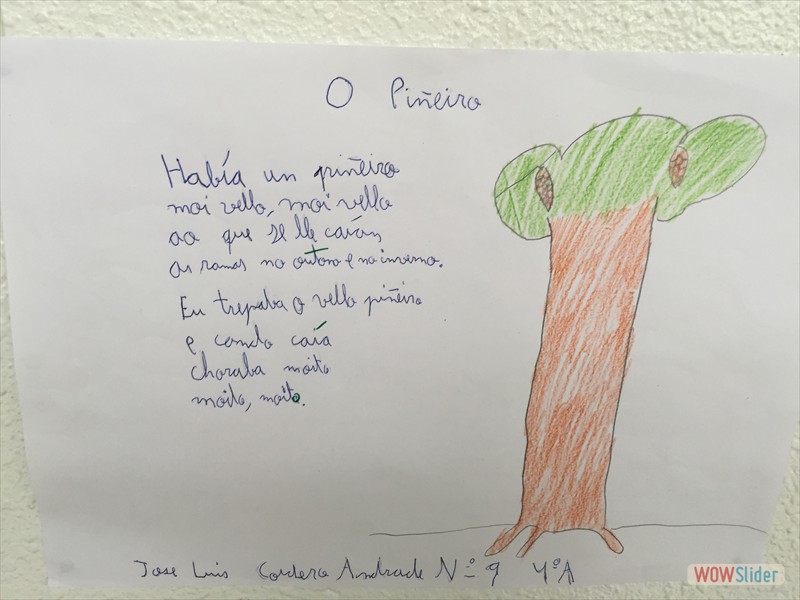 O Piñeiro
Había un piñeiro
moi vello, moi vello
ao que se lle caían
as ramas no outono e no inverno.
Eu trepaba o vello piñeiro
e cando caía
choraba moito
moito, moito.
Jose Luis Cordero Andrade Nº 9 4ºA
WOWSlider